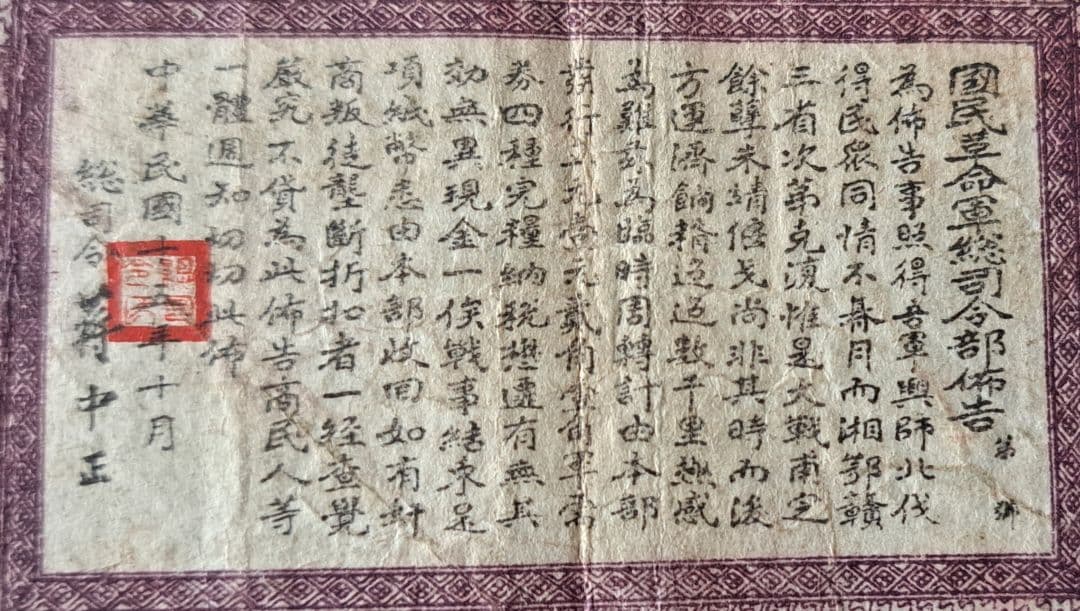 國民革命軍總司令部佈告 第 號
為佈告事照得吾軍興師北伐
得民眾同情不朞月而湘鄂贛
三省次第克復惟是大戰甫定
餘孽未靖偃戈尚非其時而後
方運濟餉糈迢迢數千里感
為難茲為臨時周轉計由本部
發行五元壹元貳角壹角軍需
券四種完糧納稅懋遷有無其
効無異現金一俟戰事結束是
項紙幣悉由本部收回如有奸
商叛徒壟斷折扣者一經查覺
嚴究不貸為此佈告商民人等
一體週知切切此佈
中華民國十五年十月
總司令蔣中正